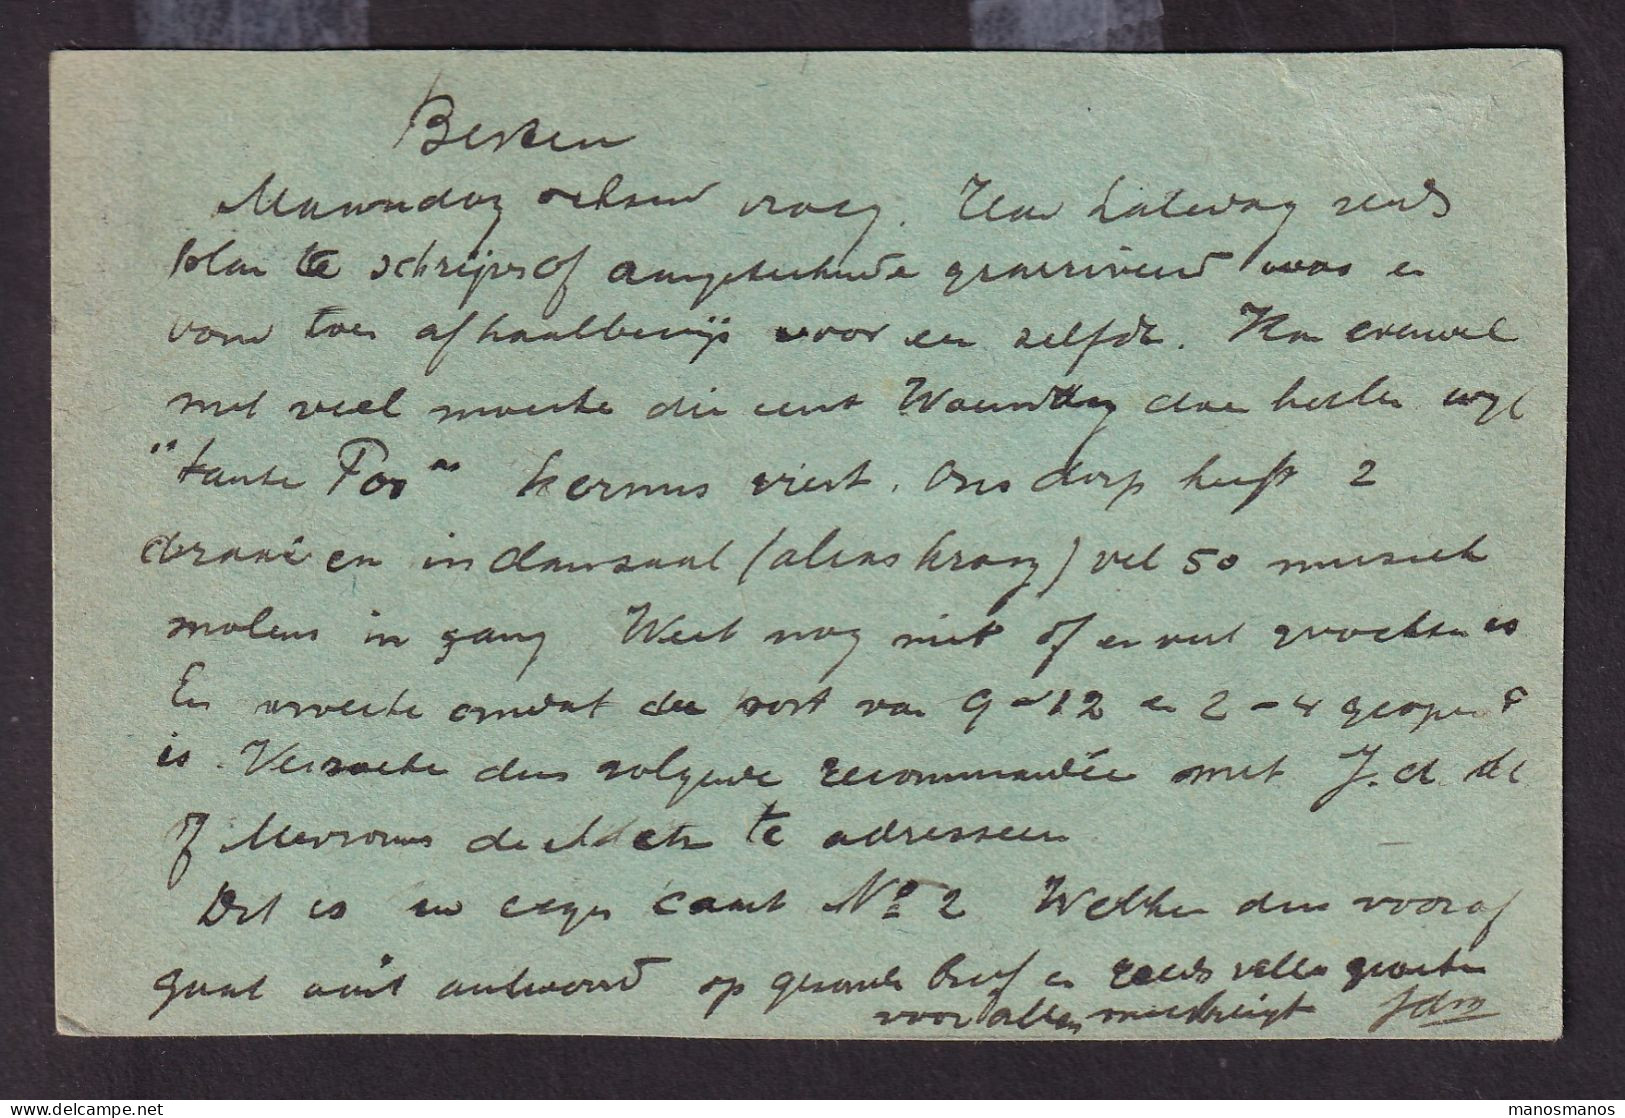 Besten
Maandag ochtend vroeg. Zaterdag reeds
plan te schrijven of aangetekende gearriveerd was en
vond toen afhaalbewijs voor een zelfde. Kan evenwel
met veel moeite die eerst Woensdag doen hesten wyl
"tante Pos" kermis viert. Ons dorp heeft 2
draaien in danszaal (alias kroeg) vel 50 muziek
molens in gang Weet nog niet of er wel geschoten is
En moeite omdat de post van 9-12 en 2-4 geopend
is. Verzoeke dus volgende recommandée met J. d. M
of Mevrouw de M te adresseeren
Dit is uw eigen caart No 2 Welken dus vooraf
gaat aan't antwoord op gezonden brief en reeds vele groeten
voor allen meekrijgt JdM
manosmanos